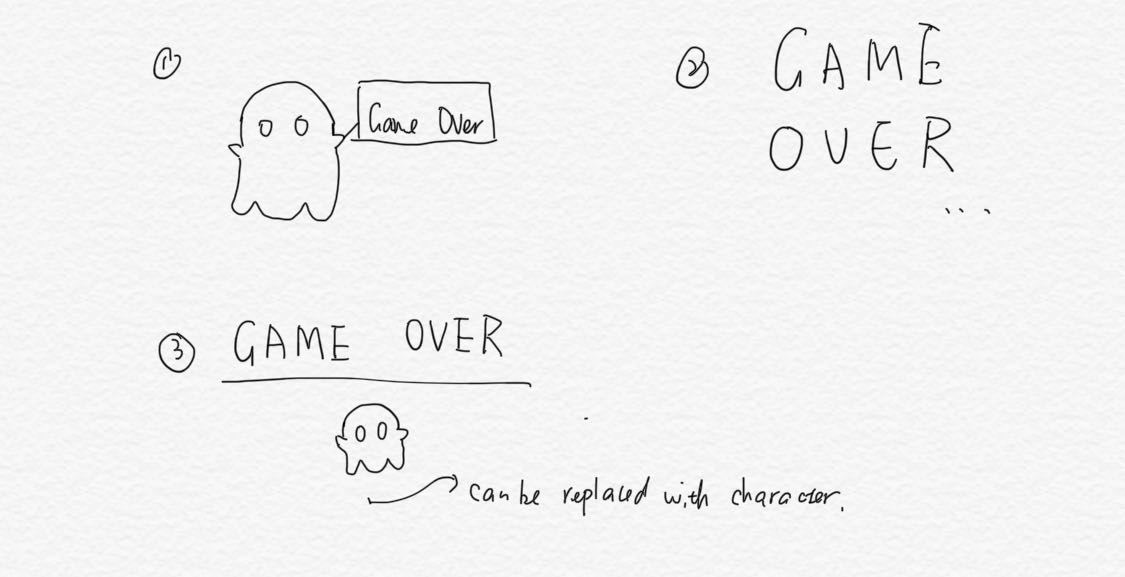 ①
Game Over
②
GAME
OVER
...
③ GAME OVER
can be replaced with character.